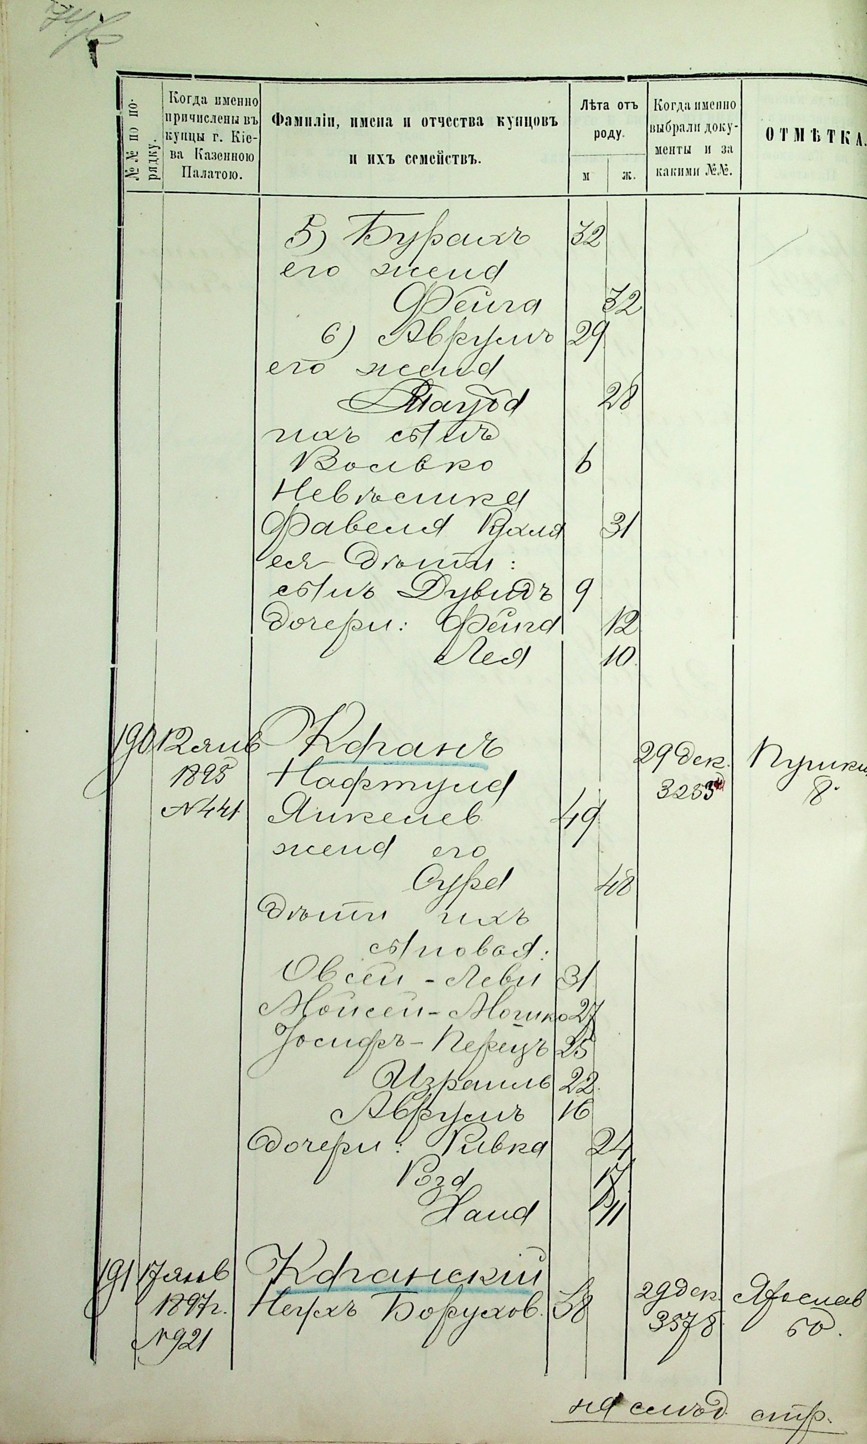 №№ по по-
рядку.
Когда именно
причислены въ
купцы г. Кіе-
ва Казенною
Палатою.
Фамиліи, имена и отчества купцовъ
и ихъ семействъ.
Лѣта отъ
роду.
м ж.
Когда именно
выбрали доку-
менты и за
какими №№.
ОТМѢТКА.
5) Бурахъ 32
его жена
Фейга 32
6) Аврумъ 29
его жена
28
ихъ сынъ
Волько 6
Невѣстка
Рухля 31
ея дѣти:
сынъ Дувидъ 9
дочери: Фейга 12
Лея 10
190 12 янв Кфанъ 29 дек. Пушки
1895 Нафтула 3253
№ 441 Янкелев 49 8
жена его
Сура 48
дѣти ихъ
сыновья:
Овсей-Леви 31
Мойсей-Мошко 27
Іосифъ-Перецъ 25
Израиль 22
Аврумъ 16
дочери: Ривка 24
Роза 17
Хана 11
191 17 янв Кфанскій 29 дек Ярослав
1897г. Борухов. 38 3578
№ 921
на слѣд. стр.